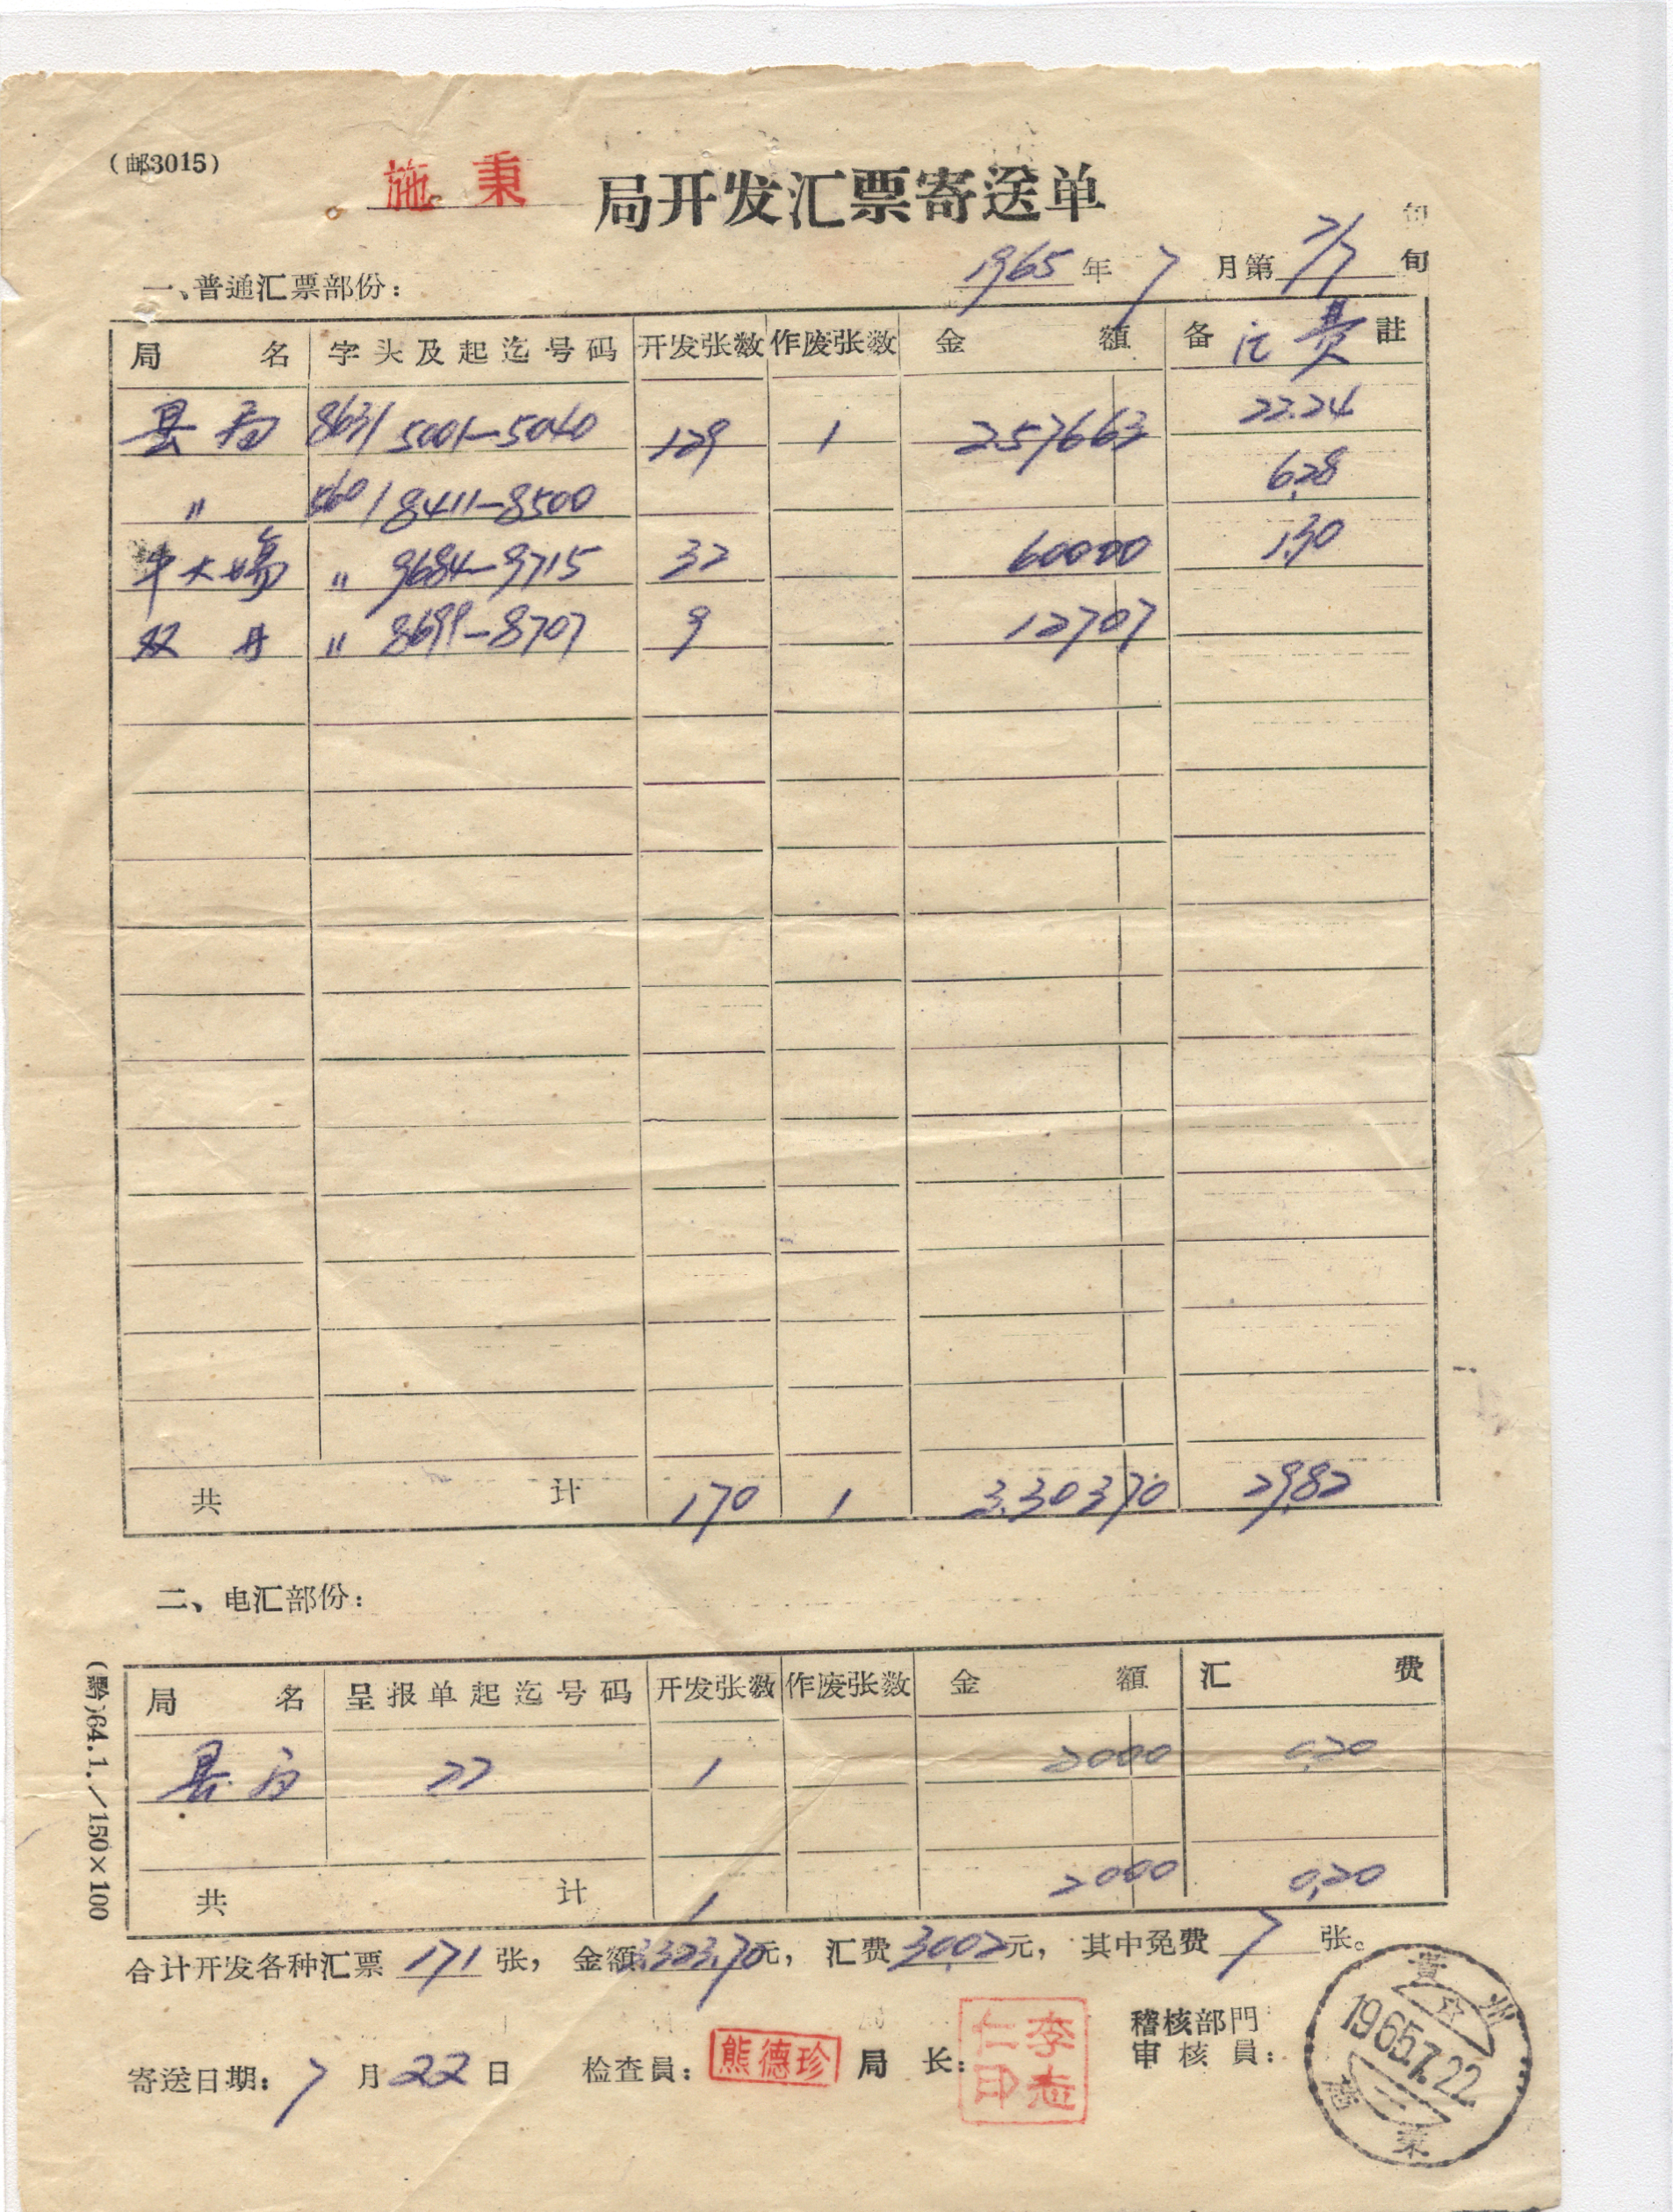 (邮3015)
施秉 局开发汇票寄送单
旬
1965年7月第 旬
一、普通汇票部份：
局名 字头及起迄号码 开发张数 作废张数 金额 备註 汇费
县局 8631 5001—5040 129 1 257663 22.24
〃 8411—8500 6.28
牛大場 〃 9684—9715 32 60000 1.30
双井 〃 8699—8707 9 12707
共计 170 1 3.30370 29.82
二、电汇部份：
局名 呈报单起迄号码 开发张数 作废张数 金额 汇费
县局 22 1 2000 0.20
共计 1 2000 0.20
合计开发各种汇票 171 张，金额3323.70元，汇费30.02元，其中免费 7 张。
寄送日期：7月22日 检查員：熊德珍 局长：李志仁印 稽核部門
审核員：
贵州
1965.7.22
施秉
(黔)64.1.／150×100